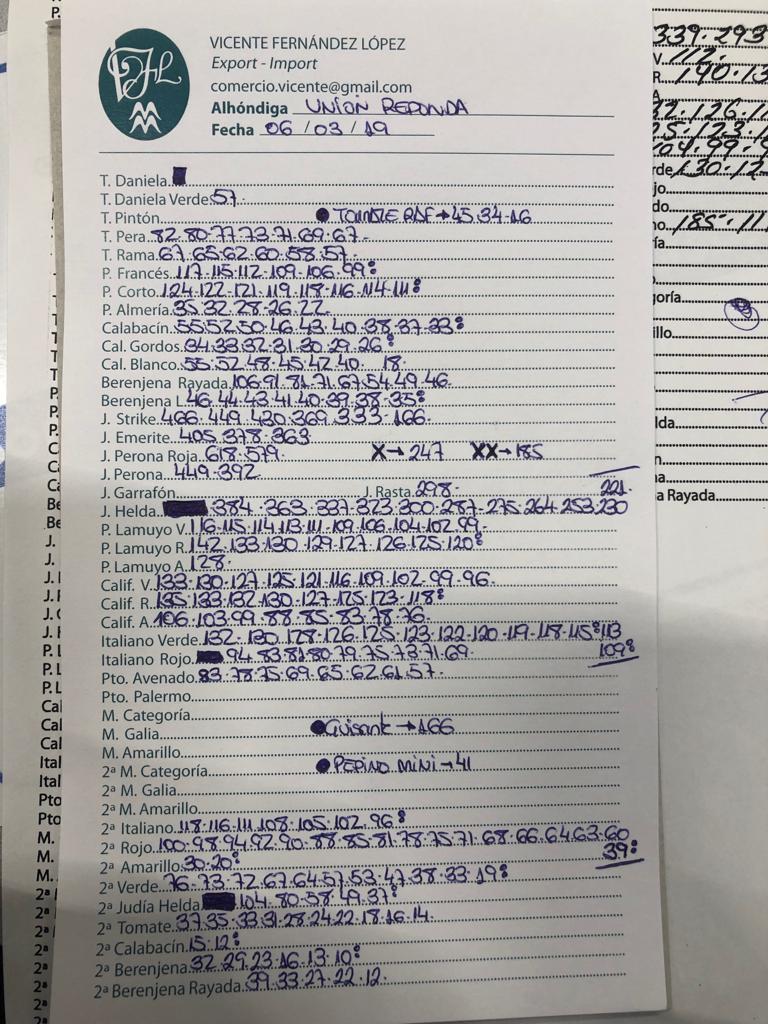 VICENTE FERNÁNDEZ LÓPEZ
Export - Import
comercio.vicente@gmail.com
Alhóndiga UNION REDONDA
Fecha 06/03/19
T. Daniela
T. Daniela Verde 57.
T. Pintón ● TOMATE RAF→45.34.16
T. Pera 82.80.77.73.71.69.67.
T. Rama 67.65.62.60.58.57.
P. Francés 117.115.112.109.106.99:
P. Corto 124.122.121.119.118.116.114.111:
P. Almería 35.32.28.26.22.
Calabacín 55.52.50.46.43.40.38.37.23:
Cal. Gordos 34.33.32.31.30.29.26:
Cal. Blanco 55.52.48.45.42.40. 18.
Berenjena Rayada 106.91.81.71.67.54.49.46.
Berenjena L 46.44.43.41.40.39.38.35:
J. Strike 466.449.430.369.333.166.
J. Emerite 405.378.363
J. Perona Roja 618.579. X→247 XX→185
J. Perona 449.392
J. Garrafón J. Rasta 298. 221.
J. Helda 384.363.337.323.300.287.275.264.253.230
P. Lamuyo V. 116.115.114.113.111.109.106.104.102.99.
P. Lamuyo R. 142.133.130.129.127.126.125.120:
P. Lamuyo A. 128.
Calif. V. 133.130.127.125.121.116.109.102.99.96.
Calif. R. 135.133.132.130.127.125.123.118:
Calif. A. 106.103.99.88.85.83.78.76.
Italiano Verde 132.130.128.126.125.123.122.120.119.118.115:113
Italiano Rojo 94.83.81.80.79.75.73.71.69. 109:
Pto. Avenado 83.78.75.69.65.62.61.57.
Pto. Palermo
M. Categoría
M. Galia ● Guisante→166
M. Amarillo
2ª M. Categoría ● PEPINO MINI→41
2ª M. Galia
2ª M. Amarillo
2ª Italiano 118.116.111.108.105.102.96:
2ª Rojo 100.98.94.92.90.88.85.81.78.75.71.68.66.64.63.60
2ª Amarillo 30.20: 39:
2ª Verde 76.73.72.67.64.57.53.47.38.33.19:
2ª Judía Helda 104.80.58.49.37:
2ª Tomate 37.35.33.31.28.24.22.18.16.14.
2ª Calabacín 15.12:
2ª Berenjena 32.29.23.16.13.10:
2ª Berenjena Rayada 39.33.27.22.12.